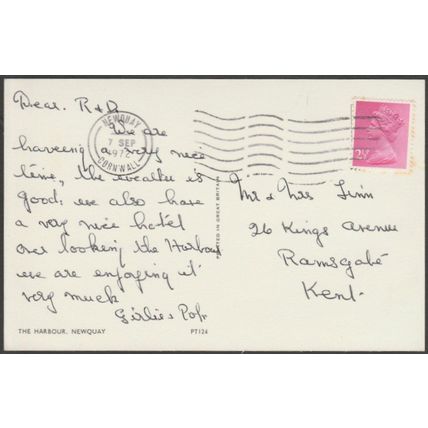 Dear. R & D
We are
haveing a very nice
time, the weather is
good; we also have
a very nice hotel
over looking the Harbour
we are enjoying it
very much
Girlie &
THE HARBOUR, NEWQUAY
PT124
NEWQUAY
7 SEP
1972
CORNWALL
PRINTED IN GREAT BRITAIN
2½
Mr & Mrs Finn
26 Kings Avenue
Ramsgate
Kent.